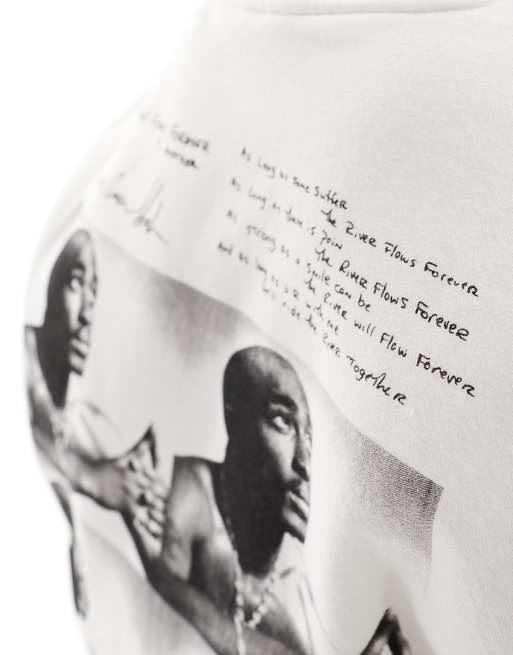 Forever
As long as some suffer
the River Flows Forever
As long as there is pain
the River Flows Forever
As strong as a smile can be
the River will Flow Forever
And as long as u R with me
we'll ride the River Together